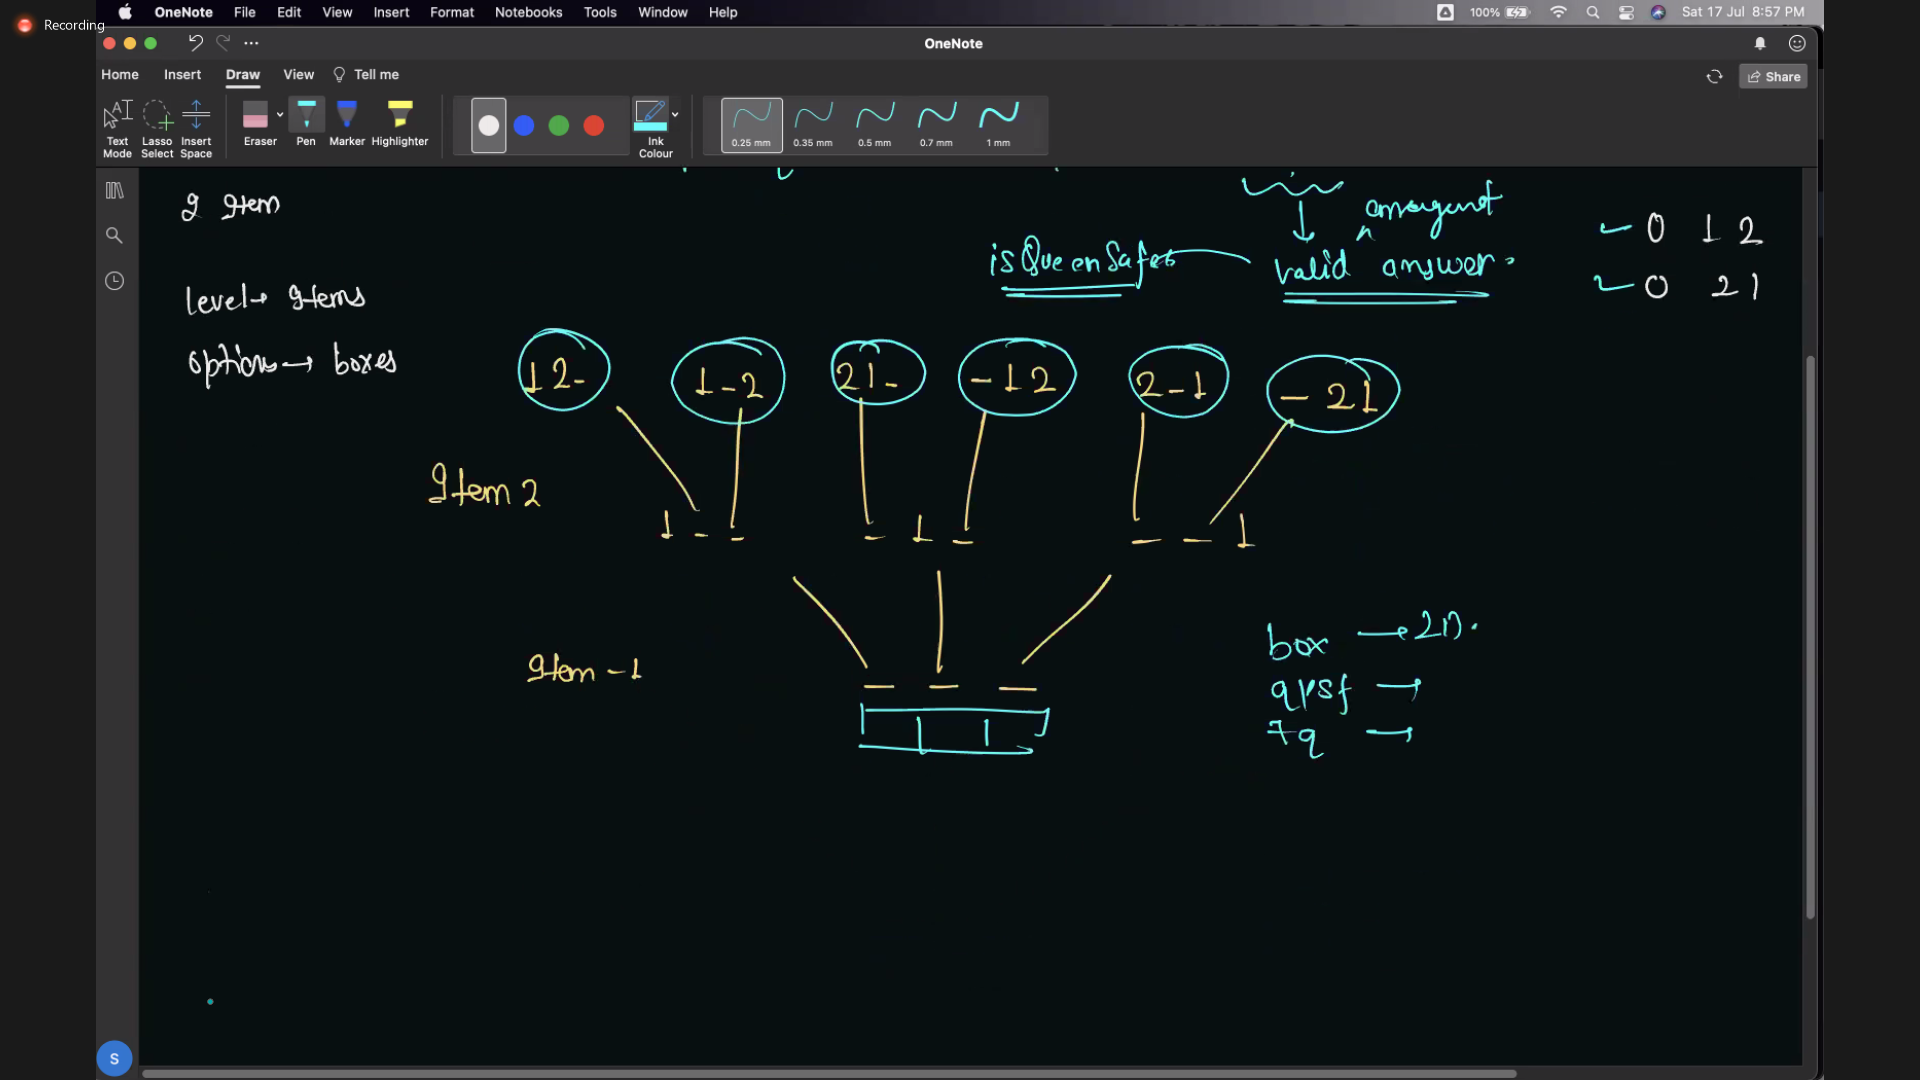 Recording
OneNote File Edit View Insert Format Notebooks Tools Window Help
100% Sat 17 Jul 8:57 PM
OneNote
Home Insert Draw View Tell me
Share
Text Mode
Lasso Select
Insert Space
Eraser
Pen
Marker
Highlighter
Ink Colour
0.25 mm 0.35 mm 0.5 mm 0.7 mm 1 mm
2 Item
0 1 2
isQueenSafe valid answer.
0 2 1
level → Items
options → boxes
1 2 - 1 - 2 2 1 - - 1 2 2 - 1 - 2 1
Item 2
1 - - - 1 - - - 1
box → 2D.
Item - 1
- - -
qpsf →
tq →
S